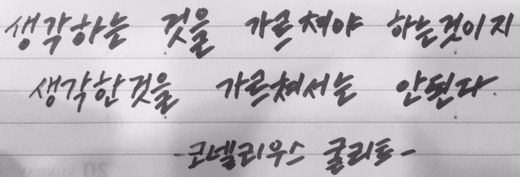 생각하는 것을 가르쳐야 하는것이지
생각한것을 가르쳐서는 안된다.
-코넬리우스 굴리트-